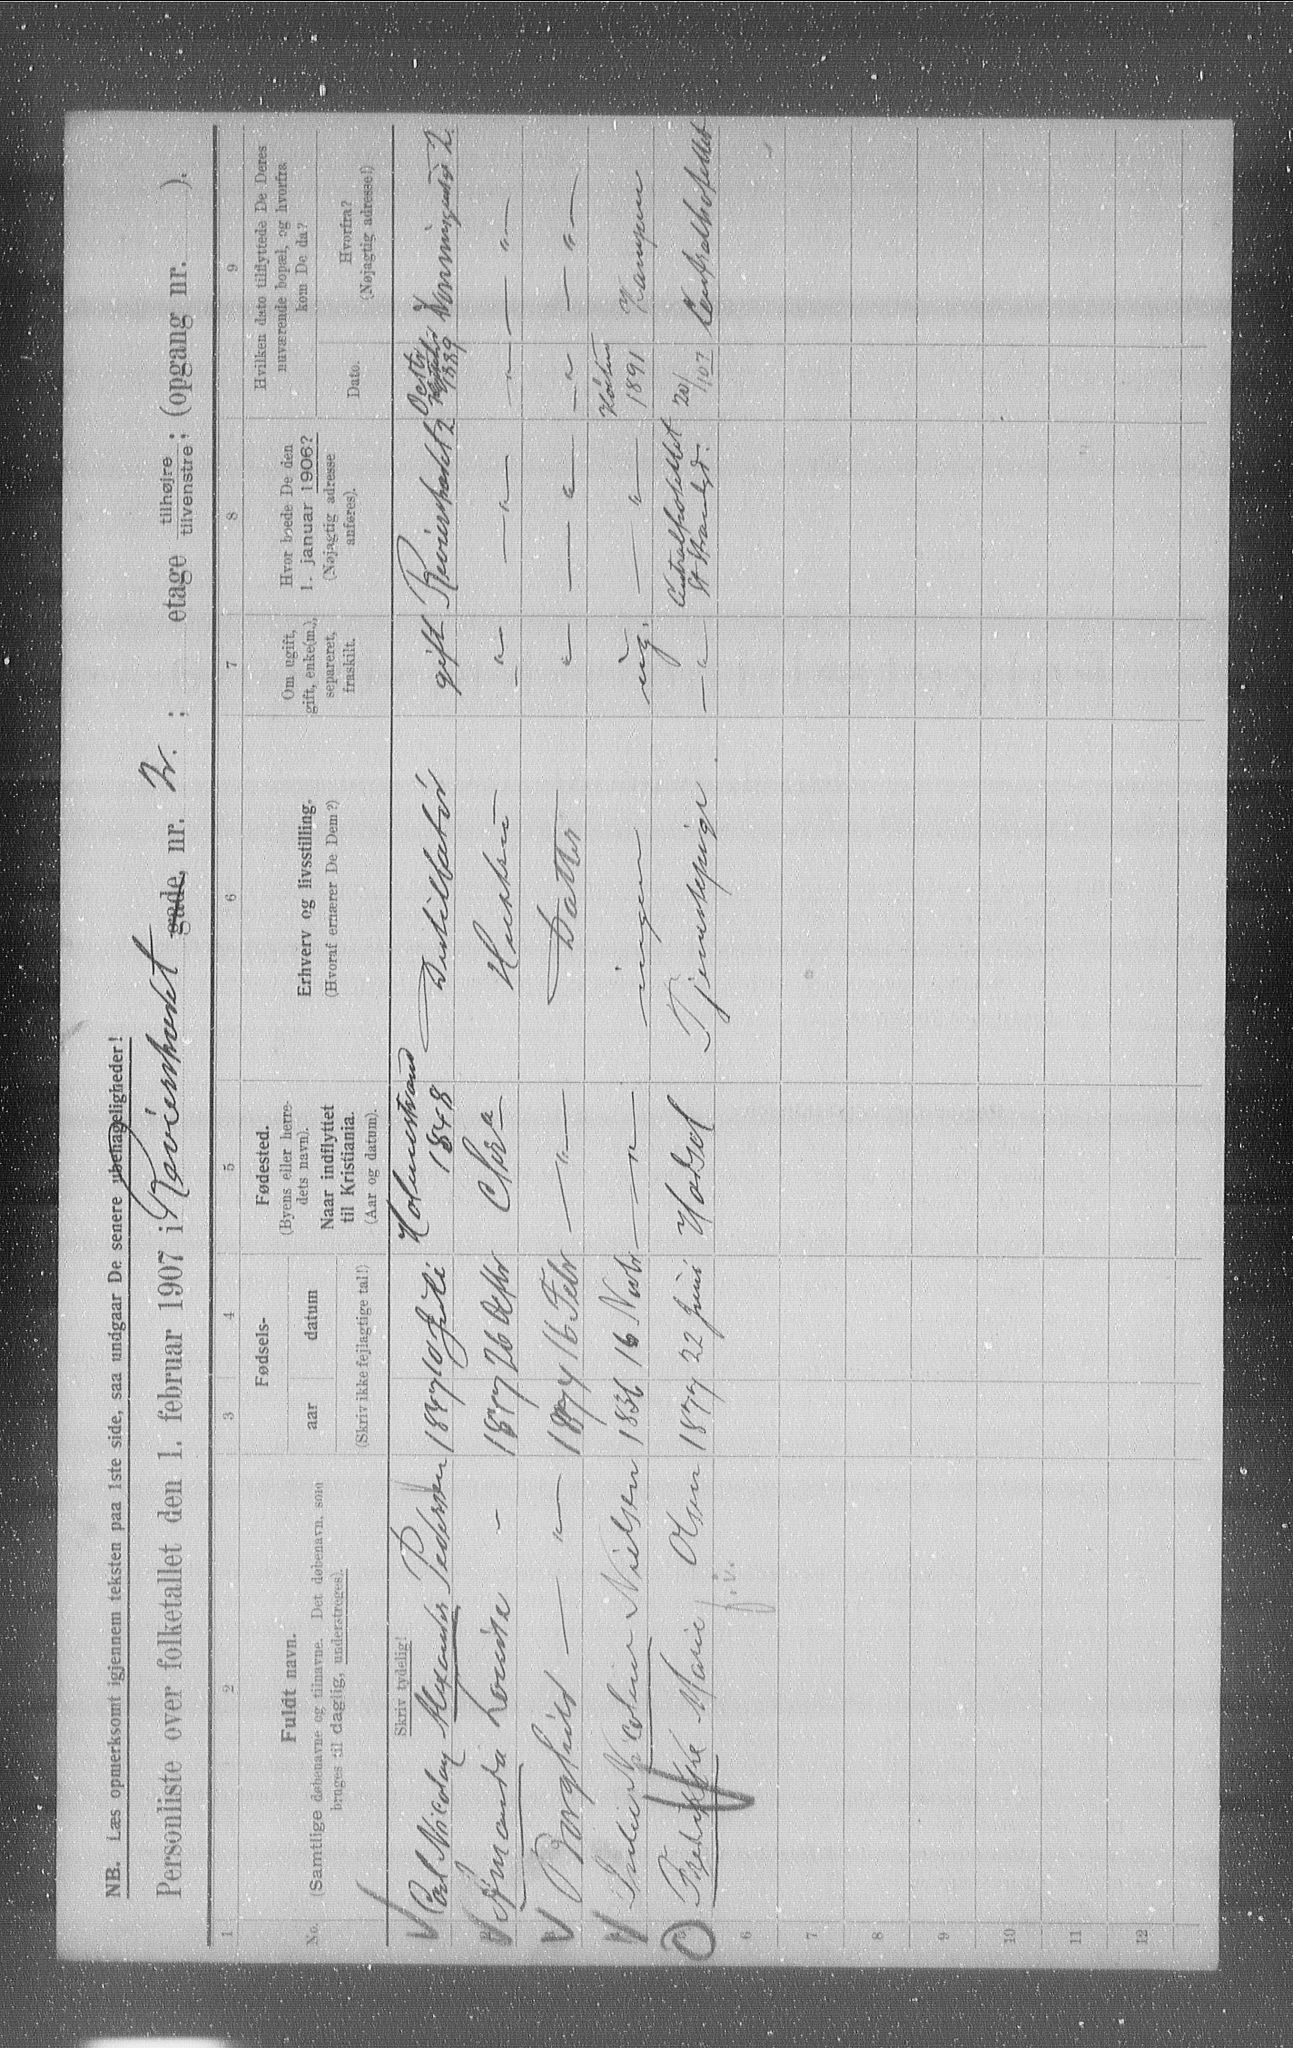 NB. Læs opmerksomt igjennem teksten paa 1ste side, saa undgaar De senere ubehageligheder!
Personliste over folketallet den 1. februar 1907 i Revierstredet gade, nr. 2. ; etage tilhøjre tilvenstre; (opgang nr. ).
1 2 3 4 5 6 7 8 9
No.
Fuldt navn.
(Samtlige døbenavne og tilnavne. Det døbenavn, som
bruges til daglig, understreges).
Fødsels-
aar datum
(Skriv ikke fejlagtige tal!)
Fødested.
(Byens eller herre-
dets navn).
Naar indflyttet
til Kristiania.
(Aar og datum).
Erhverv og livsstilling.
(Hvoraf ernærer De Dem?)
Om ugift,
gift, enke(m.),
separeret,
fraskilt.
Hvor boede De den
1. januar 1906?
(Nøjagtig adresse
anføres).
Hvilken dato tilflyttede De Deres
nuværende bopæl, og hvorfra
kom De da?
Dato.
Hvorfra?
(Nøjagtig adresse!)
Skriv tydelig!
Carl Nicolay Alexander Pedersen 1847 10 Juli Holmestrand 1848 Destillatør gift 2 Octr 1889 2
Amanda Louise - 26 Chra Hustru — " — — " — — " — — " —
Borghild — " — 1874 16 Febr — " — Datter — " — — " — — " — — " —
Nielsen 1836 16 Novbr — " — ingen ug. — " — Høsten 1891 Kampen
Fredrikke Marie Olsen 1877 22 Juni Hadsel Tjenestepige — " — Centralhotellet 20/1 07 Centralhotellet
6
7
8
9
10
11
12